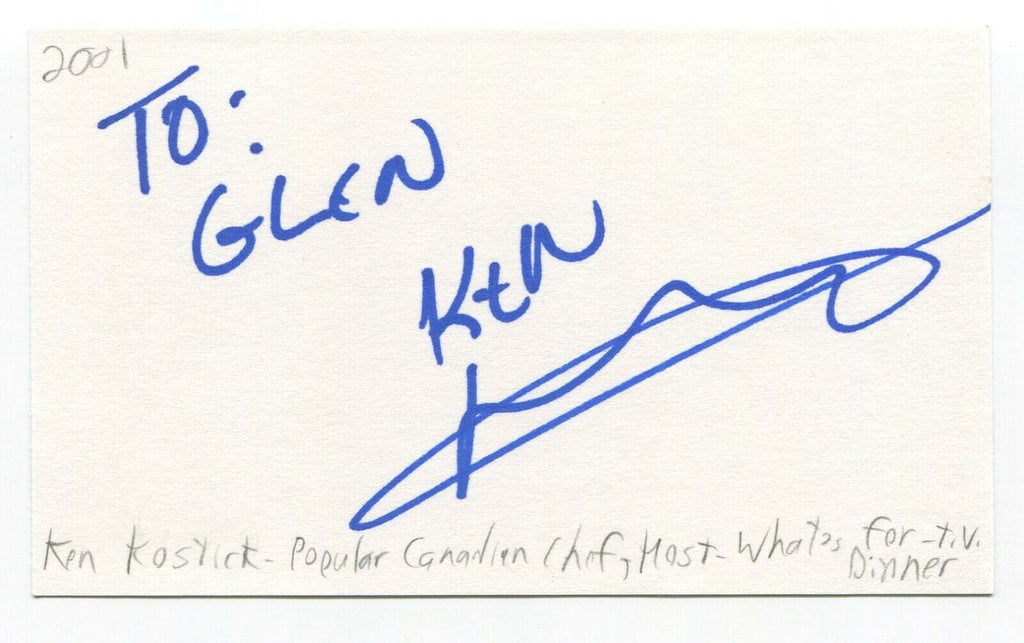 2001
TO:
GLEN
KEN
Ken Kostick - Popular Canadian Chef, Host - What's for - t.v.
Dinner